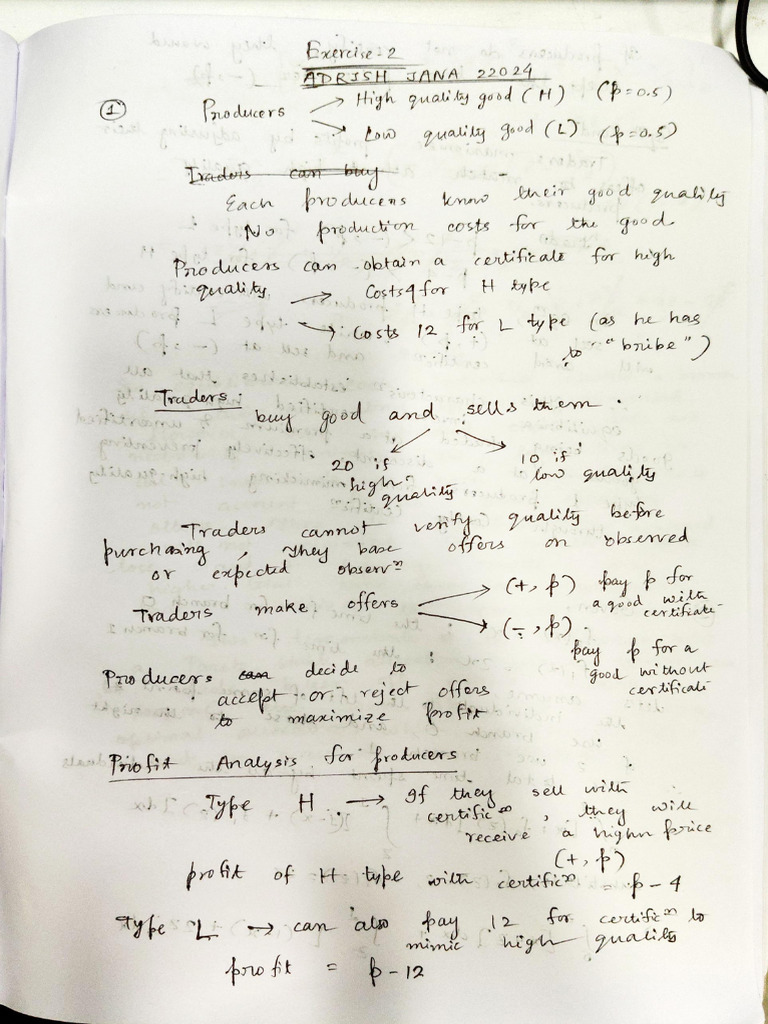 Exercise: 2
ADRISH JANA 22024
① Producers → High quality good (H) (p = 0.5)
→ Low quality good (L) (p = 0.5)
Traders can buy
Each producers know their good quality
No production costs for the good
Producers can obtain a certificate for high
quality → Costs 4 for H type
→ Costs 12 for L type (as he has
to "bribe")
Traders: buy good and sells them.
20 if high quality
10 if low quality
Traders cannot verify quality before
purchasing, They base offers on observed
or expected observⁿ
Traders make offers → (+, p) pay p for
a good with
certificate
→ (-, p).
pay p for a
good without
certificate
Producers can decide to
accept or reject offers
to maximize profit
Profit Analysis for producers:
Type H → If they sell with
certificⁿ, they will
receive a highr price
(+, p)
profit of H type with certificⁿ = p - 4
Type L → can also pay 12 for certificⁿ to
mimic high quality
profit = p - 12